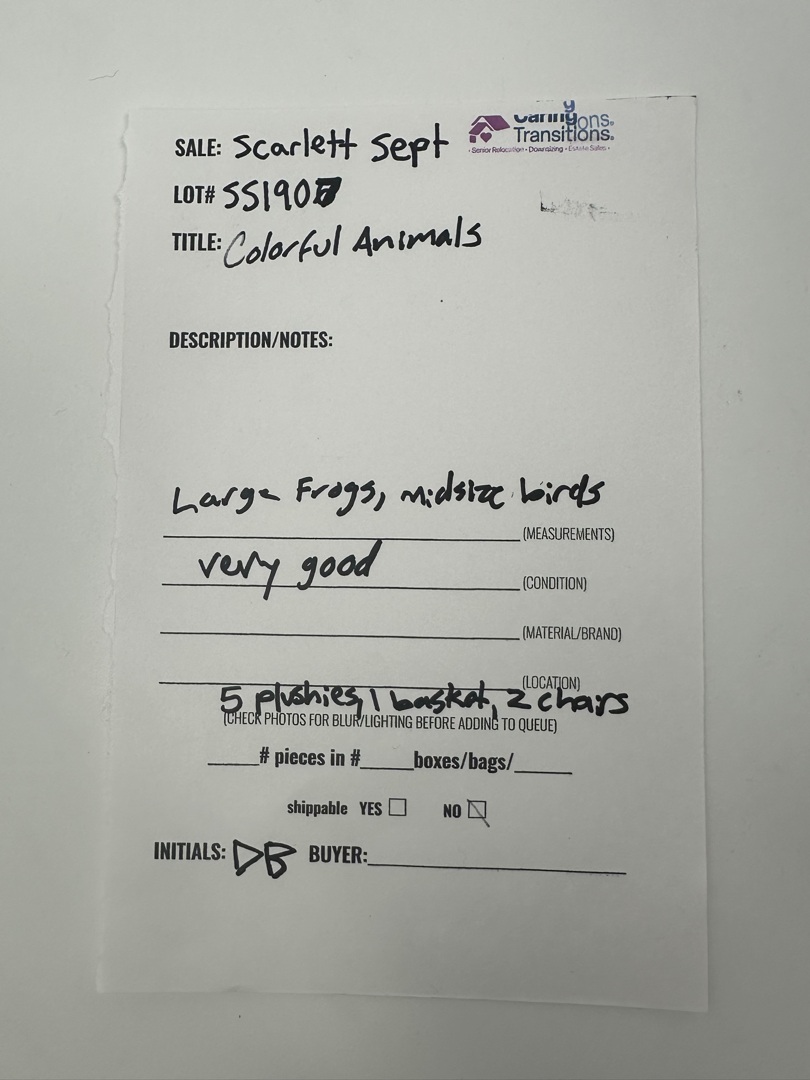 Caring
Transitions.
ons.
• Senior Relocation • Downsizing • Estate Sales •
SALE: Scarlett Sept
LOT# SS1907
TITLE: Colorful Animals
DESCRIPTION/NOTES:
Large Frogs, midsize birds
(MEASUREMENTS)
very good
(CONDITION)
(MATERIAL/BRAND)
(LOCATION)
5 plushies, 1 basket, 2 chairs
(CHECK PHOTOS FOR BLUR/LIGHTING BEFORE ADDING TO QUEUE)
# pieces in # boxes/bags/
shippable YES NO
INITIALS: DB BUYER: